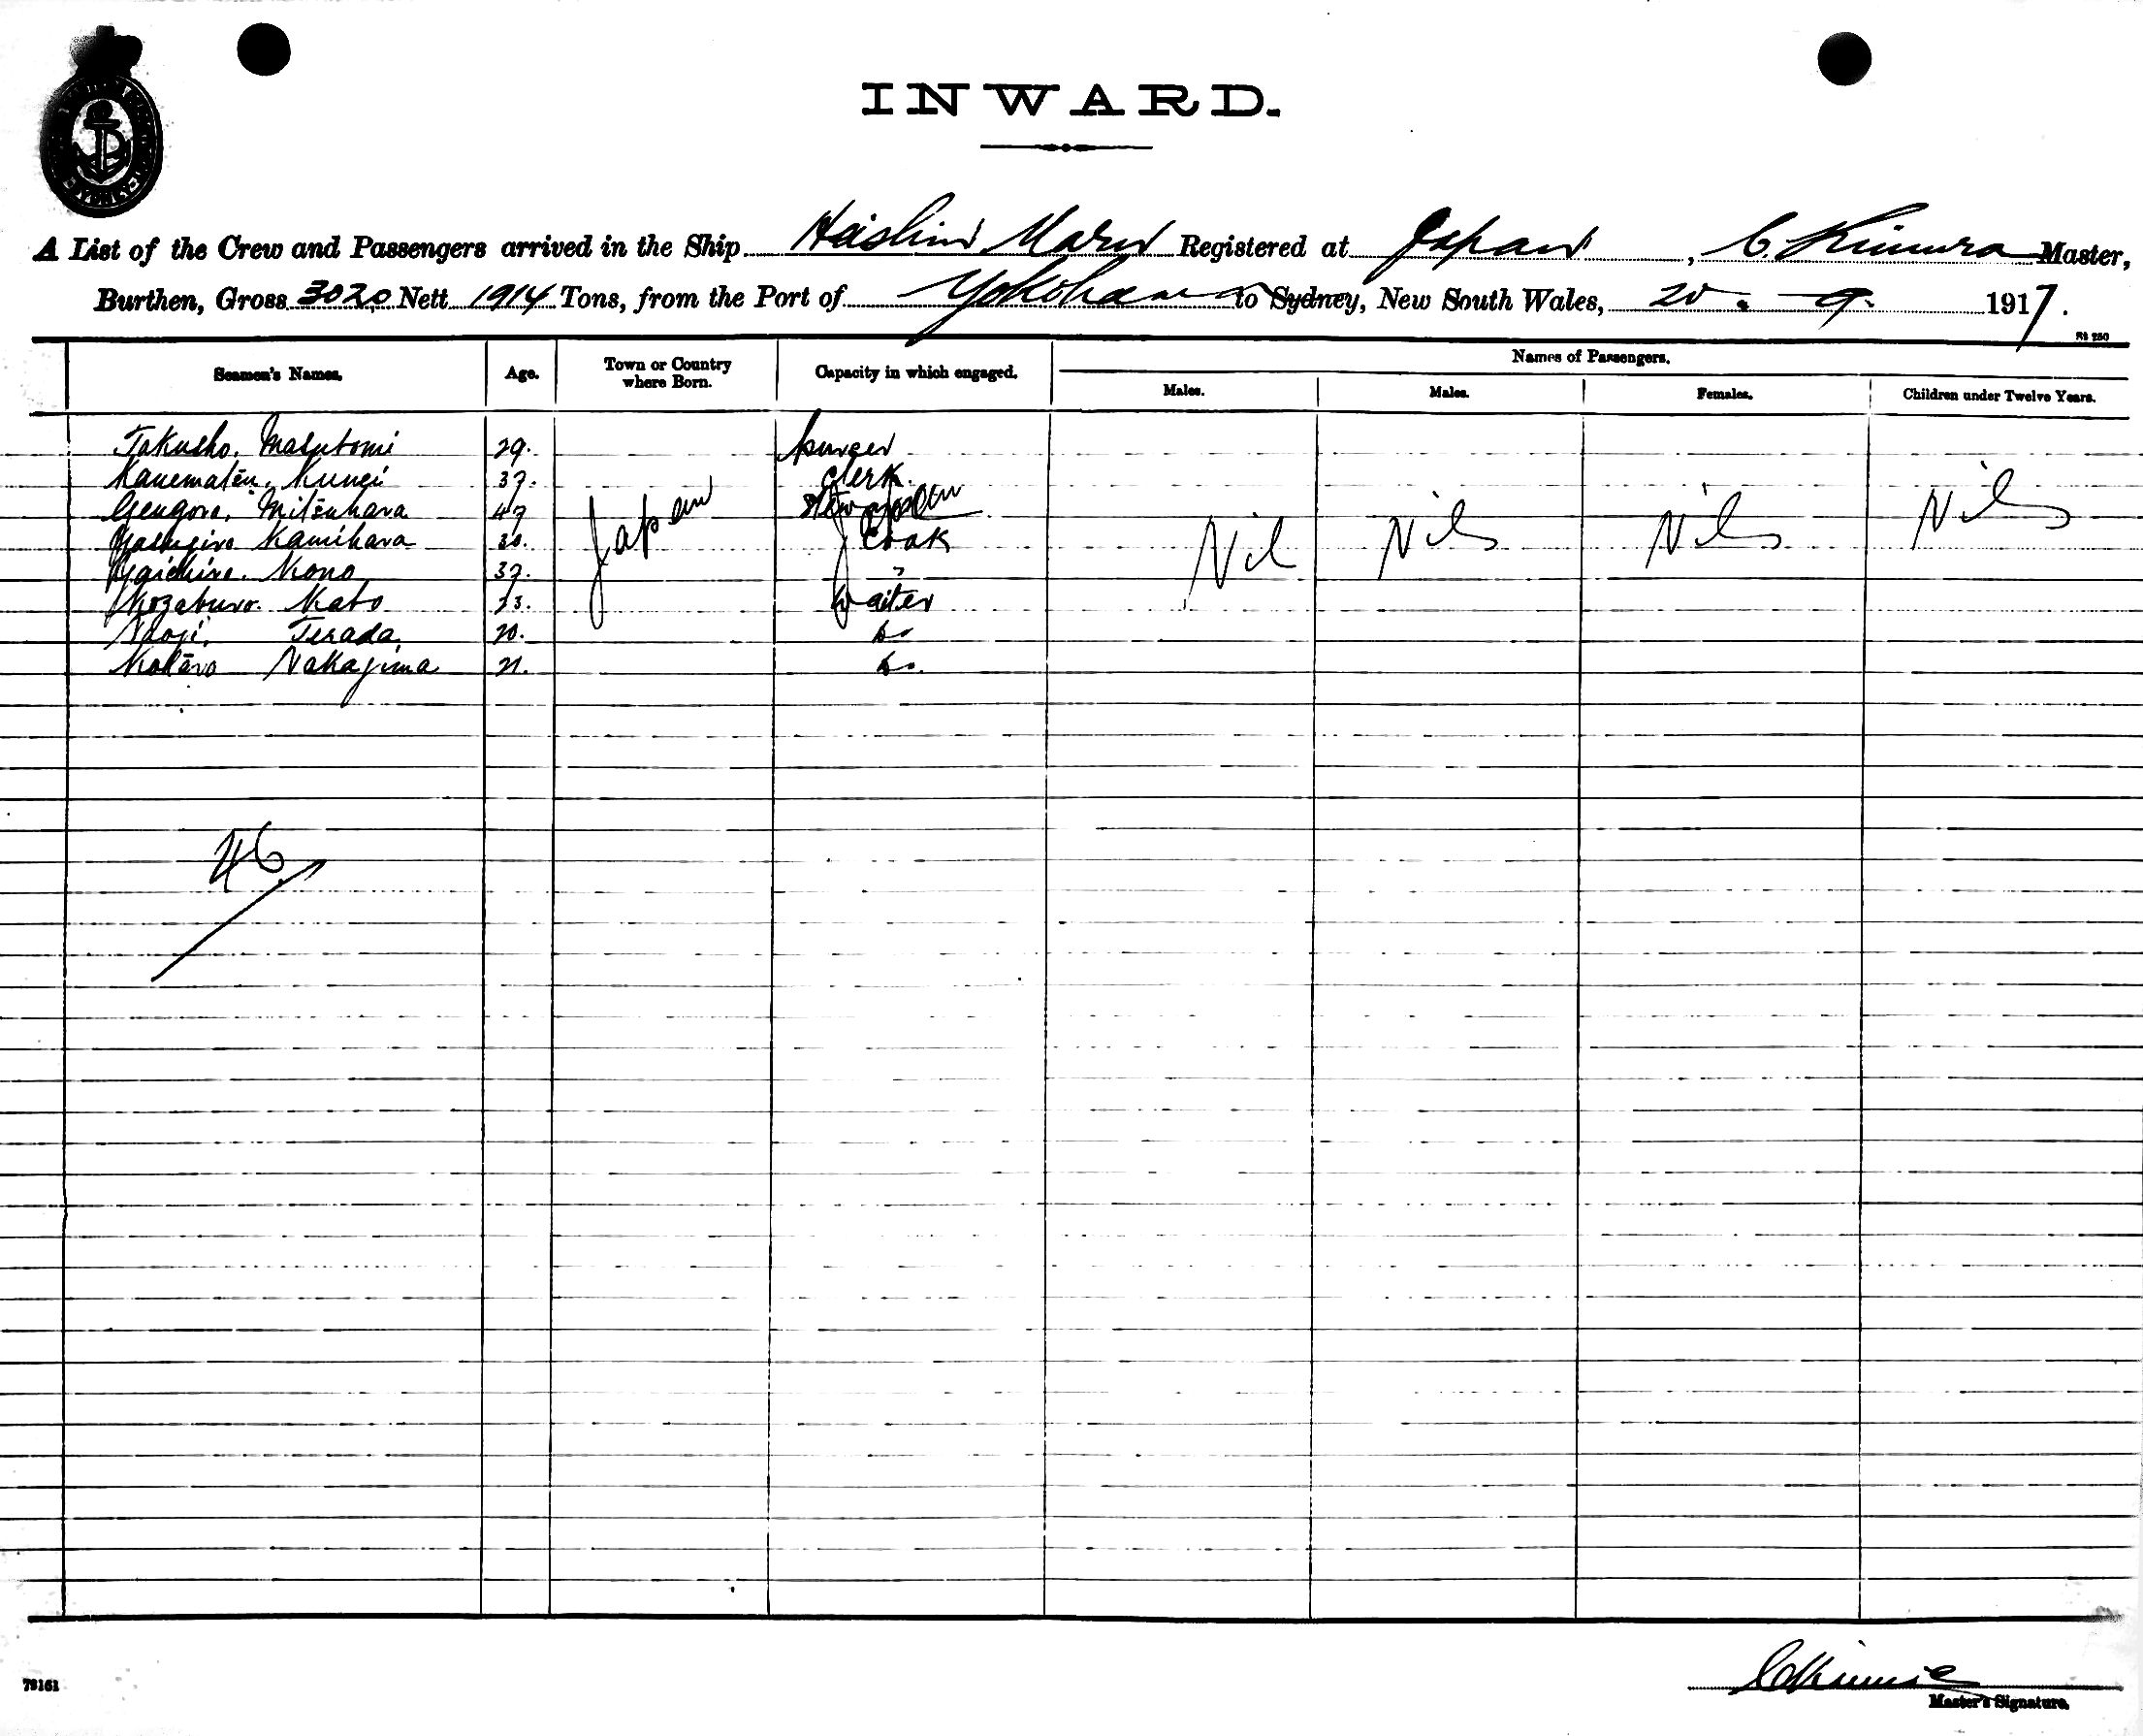 INWARD.
A List of the Crew and Passengers arrived in the Ship Maru Registered at Japan, C. Kimura Master,
Burthen, Gross 3020 Nett 1914 Tons, from the Port of Yokohama to Sydney, New South Wales, 20. 9. 1917.
Names of Passengers.
Seamen's Names. Age. Town or Country where Born. Capacity in which engaged. Males. Males. Females. Children under Twelve Years.
Takusho. Masutomi 29. purser
Kanematsu. Kunei 37. Clerk.
Gengoro. Mitsuhara 47
Kamihara 30. Cook
Kono 37. "
Kozaburo. Kato 23. Waiter
Naoji. Terada 20. Do
Kotaro Nakajima 21. Do.
Japan
Nil Nil Nil Nil
46
78161
Master's Signature.